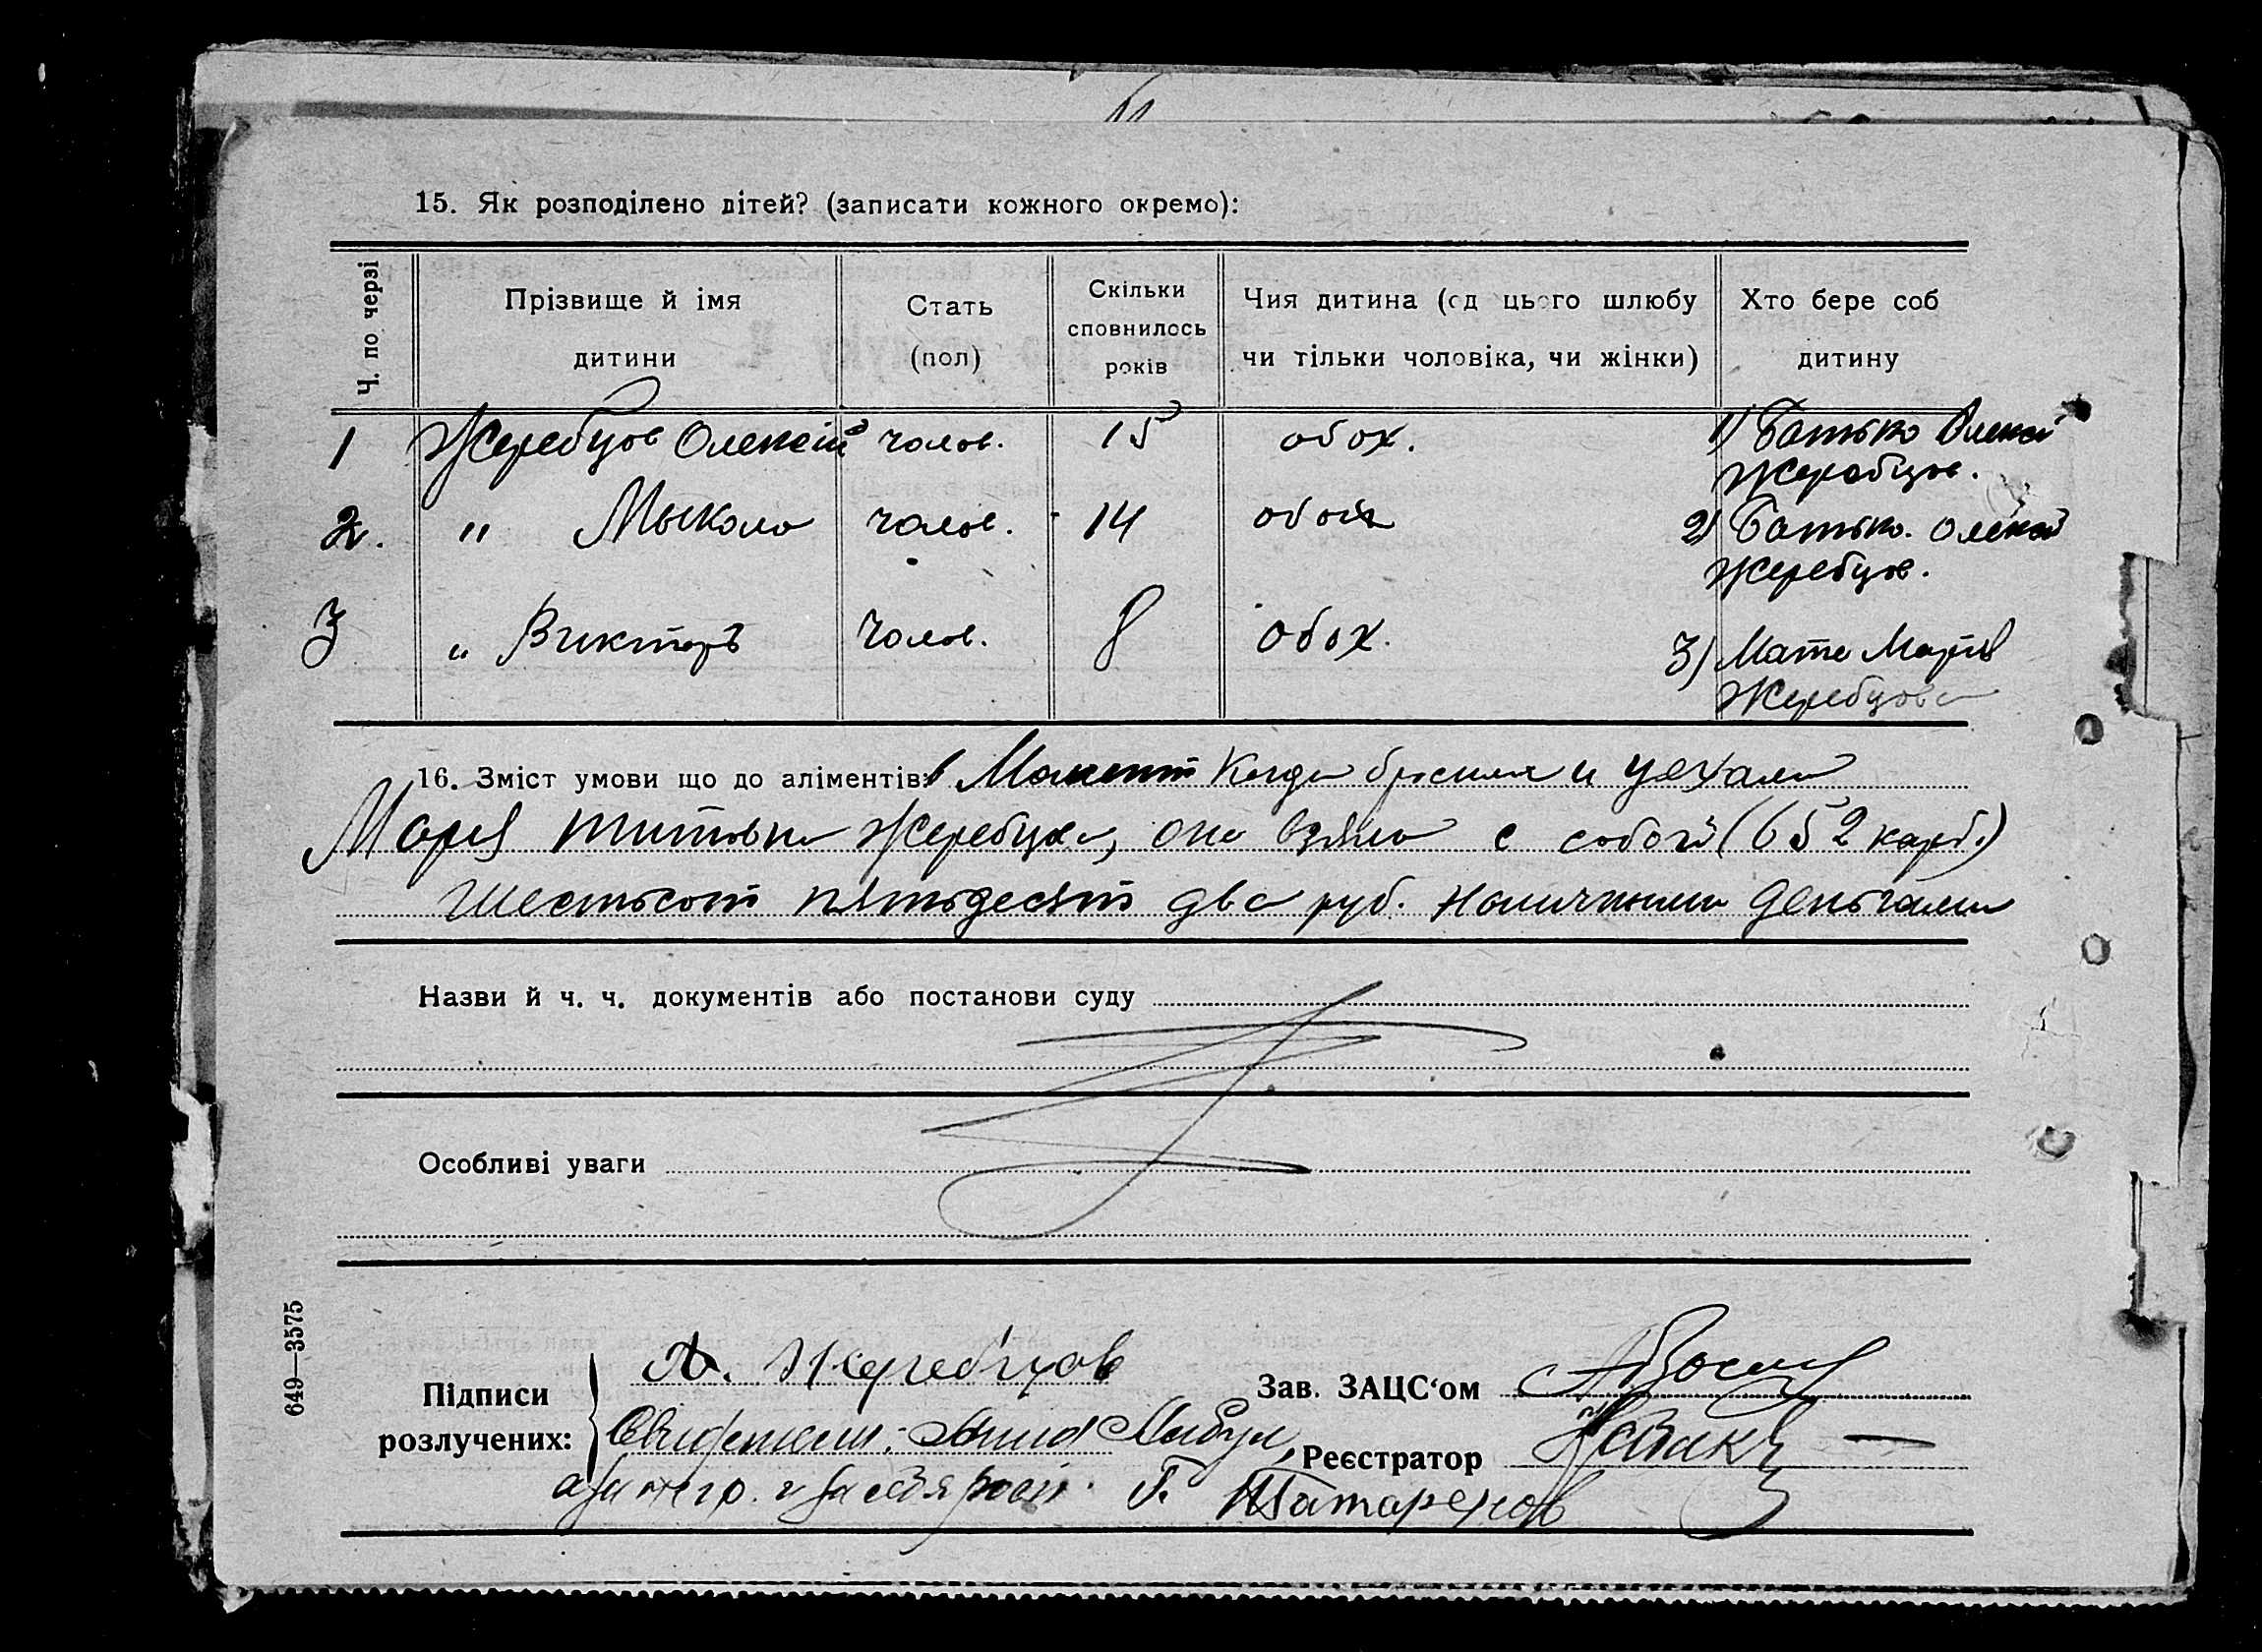 15. Як розподілено дітей? (записати кожного окремо):
Ч. по черзі
Прізвище й імя дитини
Стать (пол)
Скільки сповнилось років
Чия дитина (од цього шлюбу чи тільки чоловіка, чи жінки)
Хто бере соб дитину
1 Жеребцов Олексій чолов. 15 обох. 1) Батько Олексій Жеребцов.
2. " Мыкола чолов. 14 обоих 2) Батько. Олексій Жеребцов.
3 " Викторъ Чолов. 8 Обох. 3) Мате Марія Жеребцова
16. Зміст умови що до аліментів: в Момент когда бросила и уехала
Мария Титовна Жеребцова, она взяла с собой (652 карб.)
шестьсот пятьдесят два руб. наличными деньгами
Назви й ч. ч. документів або постанови суду
Особливі уваги
649—3575
Підписи розлучених:
А. Жеребцов
Свидетели:
Г. Татаренов
Зав. ЗАЦС‘ом
Реєстратор